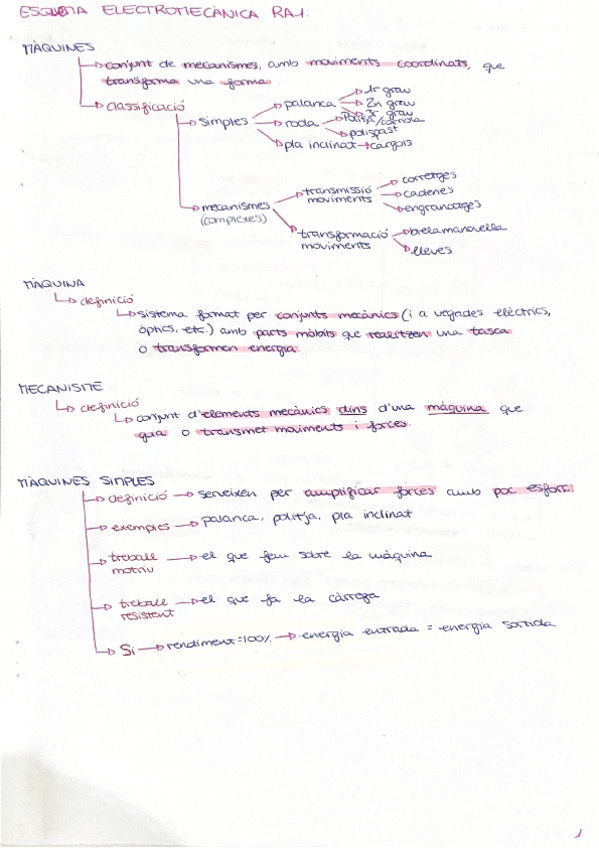 ESQUEMA ELECTROMECÀNICA RA1.
MÀQUINES
conjunt de mecanismes, amb moviments coordinats, que
transforma una forma
classificació
simples
palanca
1r grau
2n grau
3r grau
roda
Politja/corriola
polispast
pla inclinat → cargols
mecanismes
(complexes)
transmissió
moviments
corretges
cadenes
engranatges
transformació
moviments
biela manovella
lleves
MÀQUINA
definició
sistema format per conjunts mecànics (i a vegades elèctrics,
òptics, etc.) amb parts mòbils que realitzen una tasca
o transformen energia.
MECANISME
definició
conjunt d'elements mecànics dins d'una màquina que
guia o transmet moviments i forces.
MÀQUINES SIMPLES
definició → serveixen per amplificar forces amb poc esforç.
exemples → palanca, politja, pla inclinat
treball
motriu
→ el que fem sobre la màquina
treball
resistent
→ el que fa la càrrega
Si → rendiment=100% → energia entrada = energia sortida
1